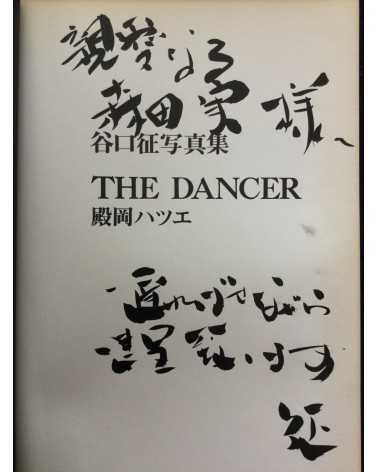 親愛なる
森田実様へ
谷口征写真集
THE DANCER
殿岡ハツエ
遅ればせながら
呈致します
征